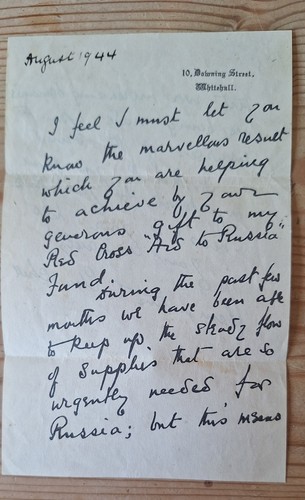 August 1944
10, Downing Street,
Whitehall.
I feel I must let you
know the marvellous result
which you are helping
to achieve by your
generous gift to my
Red Cross "Aid to Russia"
Fund.
During the past few
months we have been able
to keep up the steady flow
of supplies that are so
urgently needed for
Russia; but this means